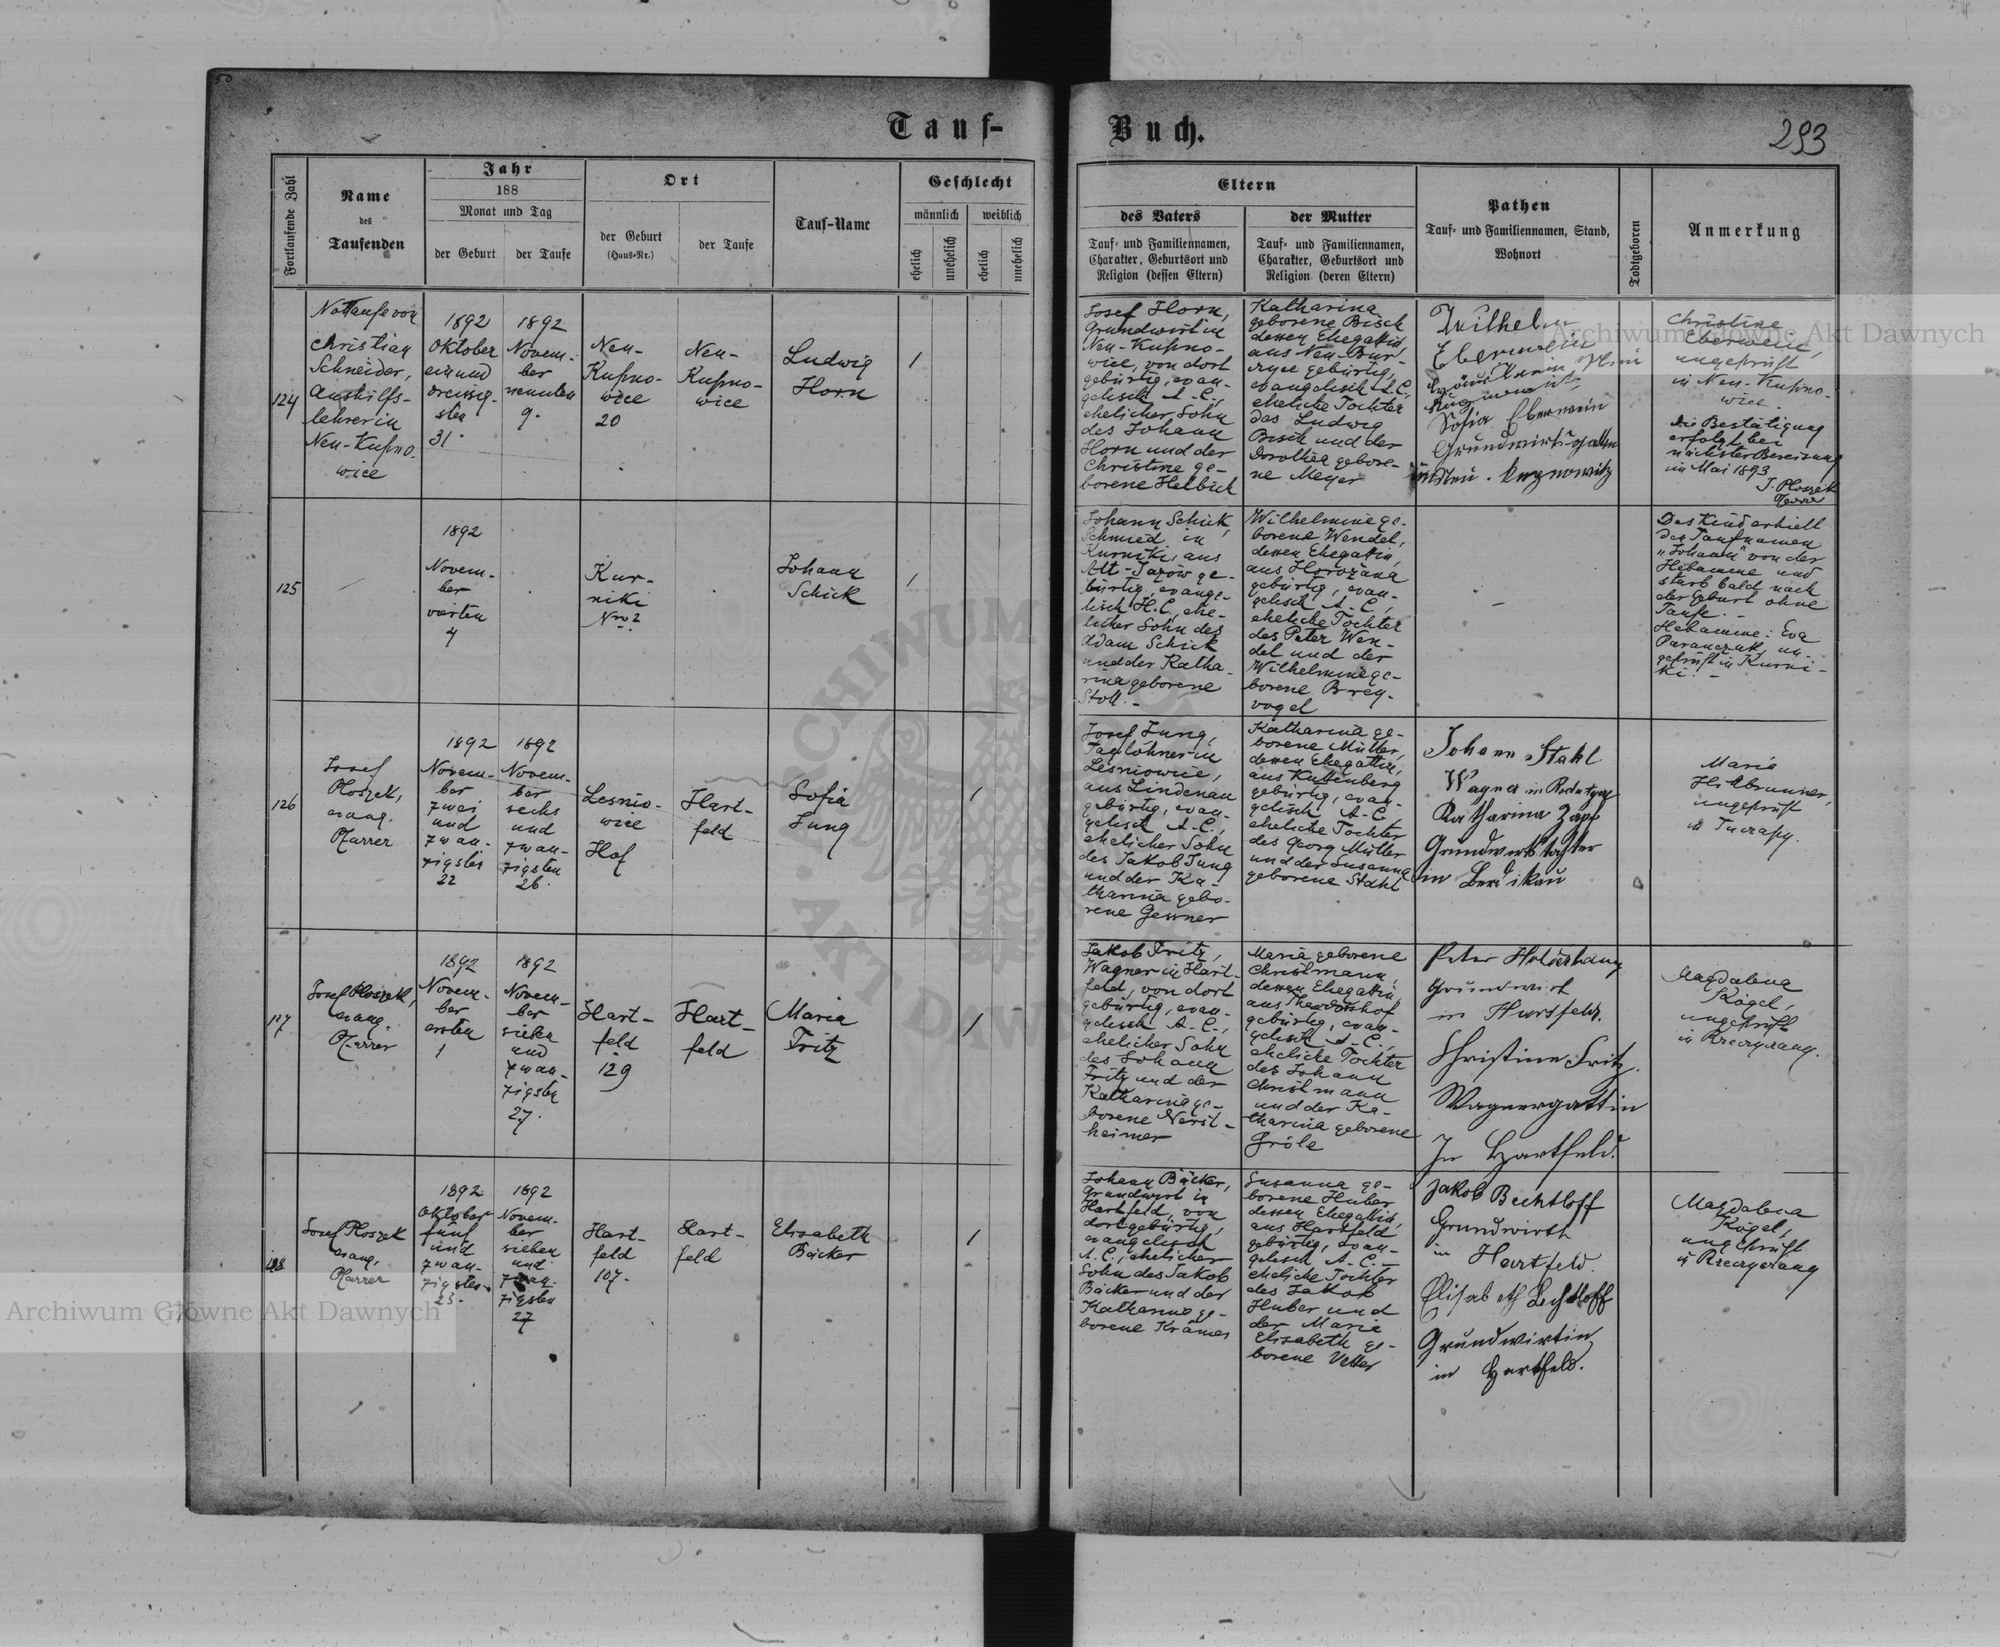 50
Tauf-
Buch.
293
Fortlaufende Zahl
Name
des
Taufenden
Jahr
188
Monat und Tag
der Geburt
der Taufe
Ort
der Geburt
(Haus-Nr.)
der Taufe
Tauf-Name
Geschlecht
männlich
weiblich
ehelich
unehelich
ehelich
unehelich
Eltern
des Vaters
Tauf- und Familiennamen,
Charakter, Geburtsort und
Religion (dessen Eltern)
der Mutter
Tauf- und Familiennamen,
Charakter, Geburtsort und
Religion (deren Eltern)
Pathen
Tauf- und Familiennamen, Stand,
Wohnort
Todtgeboren
Anmerkung
124
Nottaufe von
Christian
Schneider,
Aushilfs-
lehrer in
Neu-Kupno-
wice
1892
Oktober
einund
dreissig-
sten
31.
1892
Novem-
ber
neunten
9.
Neu-
Kupno-
wice
20
Neu-
Kupno-
wice
Ludwig
Horn
1
Josef Horn,
Grundwirt in
Neu-Kupno-
wice, von dort
gebürtig, evan-
gelisch A.C.,
ehelicher Sohn
des Johann
Horn und der
Christine ge-
borene Helbich
Katharina
geborene Bisch
dessen Ehegattin
aus Neu-Bur-
gebürtig,
evangelisch A.C.,
eheliche Tochter
des Ludwig
Bisch und der
Dorothea gebore-
ne Meyer
Wilhelm
Eberwein
Sofia Eberwein
Grundwirtsgattin
Christine
Eberwein,
ungeprüft
in Neu-Kupno-
wice.
Die Bestätigung
erfolgt bei
nächster Bereisung
im Mai 1893
J. Ploszek
Pfarrer
125
1892
Novem-
ber
vierten
4
Kur-
niki
Nro 2
Johann
Schick
1
Johann Schick,
Schmied in
Kurniki, aus
Alt-Jazów ge-
bürtig, evange-
lisch H.C., ehe-
licher Sohn des
Adam Schick
und der Katha-
rina geborene
Stoll. -
Wilhelmine ge-
borene Wendel,
dessen Ehegattin,
aus Horożana
gebürtig, evan-
gelisch A.C.,
eheliche Tochter
des Peter Wen-
del und der
Wilhelmine ge-
borene Brey-
vogel
Das Kind erhielt
den Taufnamen
"Johann" von der
Hebamme und
starb bald nach
der Geburt ohne
Taufe. -
Hebamme: Eva
Paranczuk, un-
geprüft in Kurni-
ki. -
126
Josef
Ploszek,
evang.
Pfarrer
1892
Novem-
ber
zwei
und
zwan-
zigsten
22
1892
Novem-
ber
sechs
und
zwan-
zigsten
26.
Lesnio-
wice
Hof
Hart-
feld
Sofia
Jung
1
Josef Jung,
Taglöhner in
Lesniowice,
aus Lindenau
gebürtig, evan-
gelisch A.C.,
ehelicher Sohn
des Jakob Jung
und der Ka-
tharina gebo-
rene Gessner
Katharina ge-
borene Müller,
dessen Ehegattin,
aus Kuttenberg
gebürtig, evan-
gelisch A.C.
eheliche Tochter
des Georg Müller
und der Susanna
geborene Stahl
Johann Stahl
Wagner in
Katharina Zapf
Grundwirtstochter
in Berdikau
Maria
ungeprüft
in Tucrapy.
127
Josef Ploszek,
evang.
Pfarrer
1892
Novem-
ber
ersten
1
1892
Novem-
ber
sieben
und
zwan-
zigsten
27.
Hart-
feld
129
Hart-
feld
Maria
Fritz
1
Jakob Fritz,
Wagner in Hart-
feld, von dort
gebürtig, evan-
gelisch A.C.,
ehelicher Sohn
des Johann
Fritz und der
Katharina ge-
borene Nerst-
heimer
Maria geborene
Christmann,
dessen Ehegattin,
aus Theodorshof
gebürtig, evan-
gelisch A.C.,
eheliche Tochter
des Johann
Christmann
und der Ka-
tharina geborene
Gröle
Peter
Grundwirt
in Hartfeld.
Christine Fritz.
Wagnergattin
In Hartfeld.
Magdalena
Kögel,
ungeprüft
in
128
Josef Ploszek
evang.
Pfarrer
1892
Oktober
fünf
und
zwan-
zigsten
25.
1892
Novem-
ber
sieben
und
zwan-
zigsten
27
Hart-
feld
107.
Hart-
feld
Elisabeth
Bäcker
1
Johann Bäcker,
Grundwirt in
Hartfeld, von
dort gebürtig,
evangelisch
A.C., ehelicher
Sohn des Jakob
Bäcker und der
Katharina ge-
borene Krämer
Susanna ge-
borene Huber
dessen Ehegattin,
aus Hartfeld
gebürtig, evan-
gelisch A.C. -
eheliche Tochter
des Jakob
Huber und
der Maria
Elisabeth ge-
borene Vetter
Jakob Bechtloff
Grundwirth
in Hartfeld.
Elisabeth Bechtloff
Grundwirtin
in Hartfeld.
Magdalena
Kögel,
ungeprüft
in
Archiwum Głowne Akt Dawnych
Archiwum Głowne Akt Dawnych